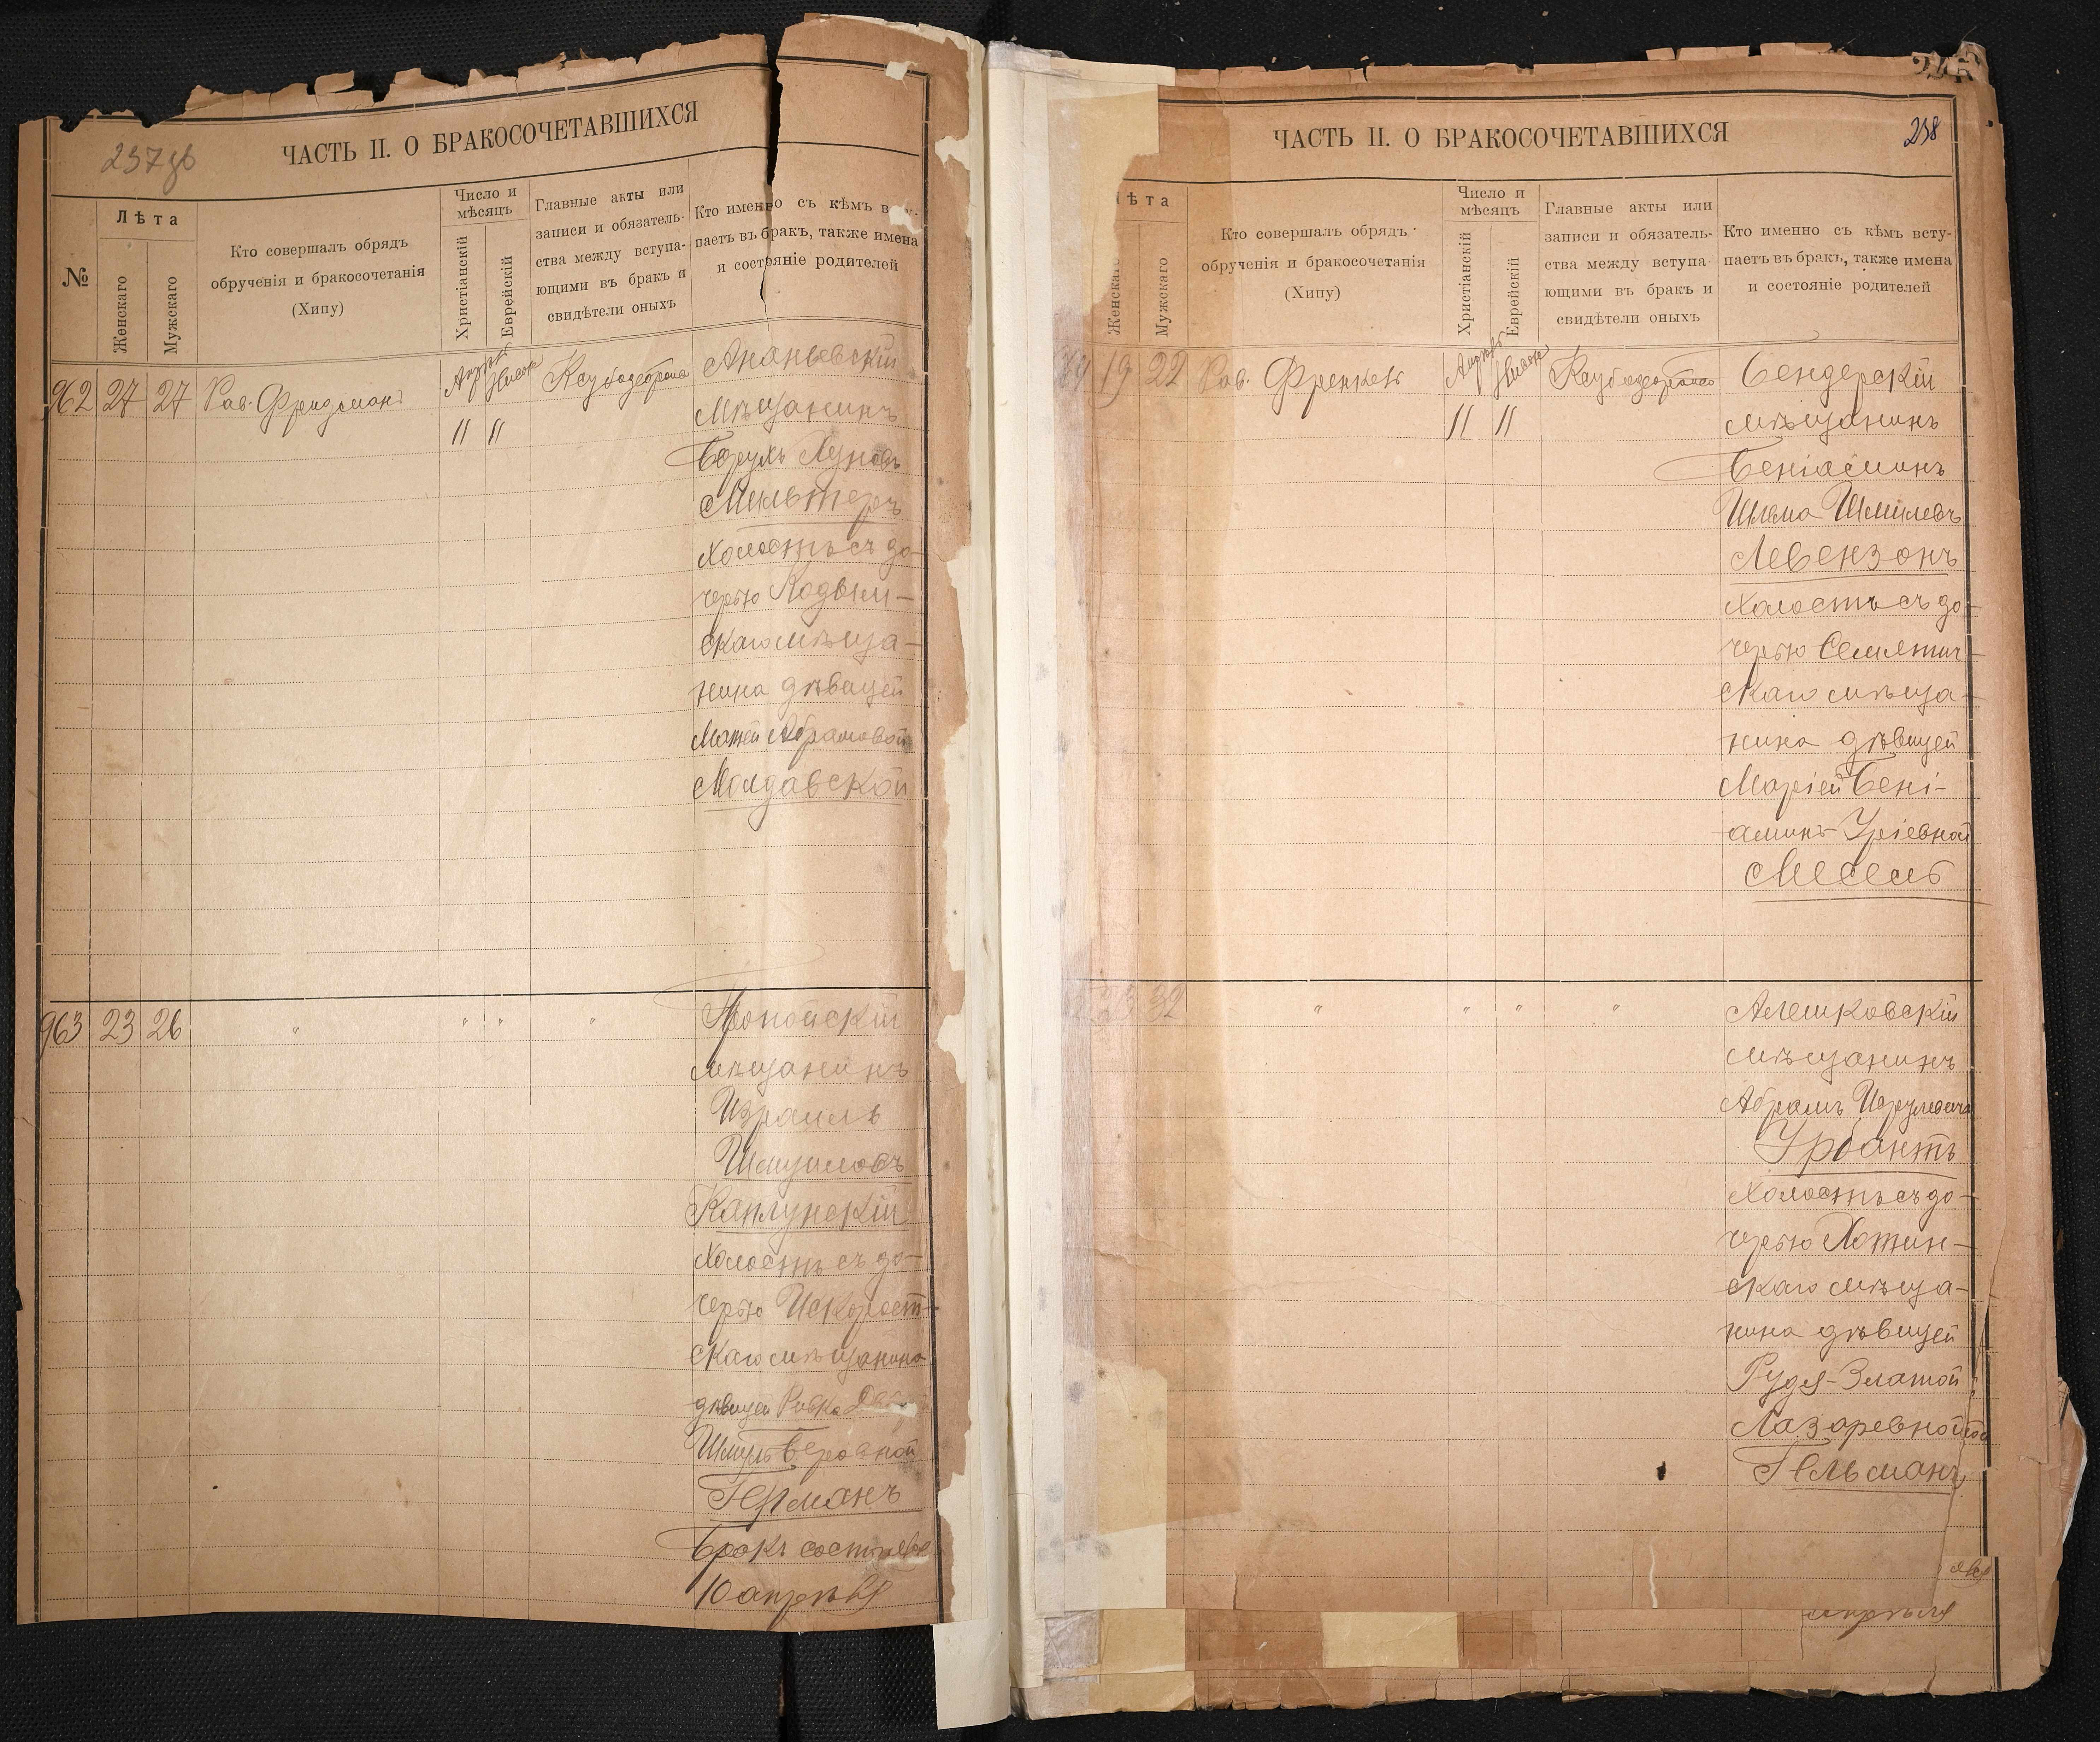 237 об
ЧАСТЬ II. О БРАКОСОЧЕТАВШИХСЯ
№
Лѣта
Женскаго
Мужскаго
Кто совершалъ обрядъ
обрученія и бракосочетанія
(Хипу)
Число и
мѣсяцъ
Христіанскій
Еврейскій
Главные акты или
записи и обязатель-
ства между вступа-
ющими въ бракъ и
свидѣтели оныхъ
Кто именно съ кѣмъ всту-
паетъ въ бракъ, также имена
и состояніе родителей
962 27 27 Рав. Фридманъ
11 11
Ананьевскій
Мѣщанинъ
Мильтеръ
Холостъ съ до-
черью Кодым-
скаго мѣща-
нина дѣвицей
Абрамовой
Молдавской
963 23 26 " " " "
мѣщанинъ
Израиль
Шмуиловъ
Каплунскій
Холостъ съ до-
черью Искорост-
скаго мѣщанина
дѣвицей Ривка
Германъ
Бракъ состоялся
10 апрѣля
238
ЧАСТЬ II. О БРАКОСОЧЕТАВШИХСЯ
ѣта
Женскаго
Мужскаго
Кто совершалъ обрядъ
обрученія и бракосочетанія
(Хипу)
Число и
мѣсяцъ
Христіанскій
Еврейскій
Главные акты или
записи и обязатель-
ства между вступа-
ющими въ бракъ и
свидѣтели оныхъ
Кто именно съ кѣмъ всту-
паетъ въ бракъ, также имена
и состояніе родителей
19 22 Рав. Френкель
11 11
Бендерскій
мѣщанинъ
Беніаминъ
Шлема Шмилевъ
Левензонъ
Холостъ съ до-
черью Семятич-
скаго мѣща-
нина дѣвицей
Маріей Бені-
аминъ-Уріевной
Месель
23 32 " " " "
Алешковскій
мѣщанинъ
Абрамъ
Урбантъ
Холостъ съ до-
черью Хотин-
скаго мѣща-
нина дѣвицей
Рудя-Златой
Лазаревной
Гельманъ
апрѣля